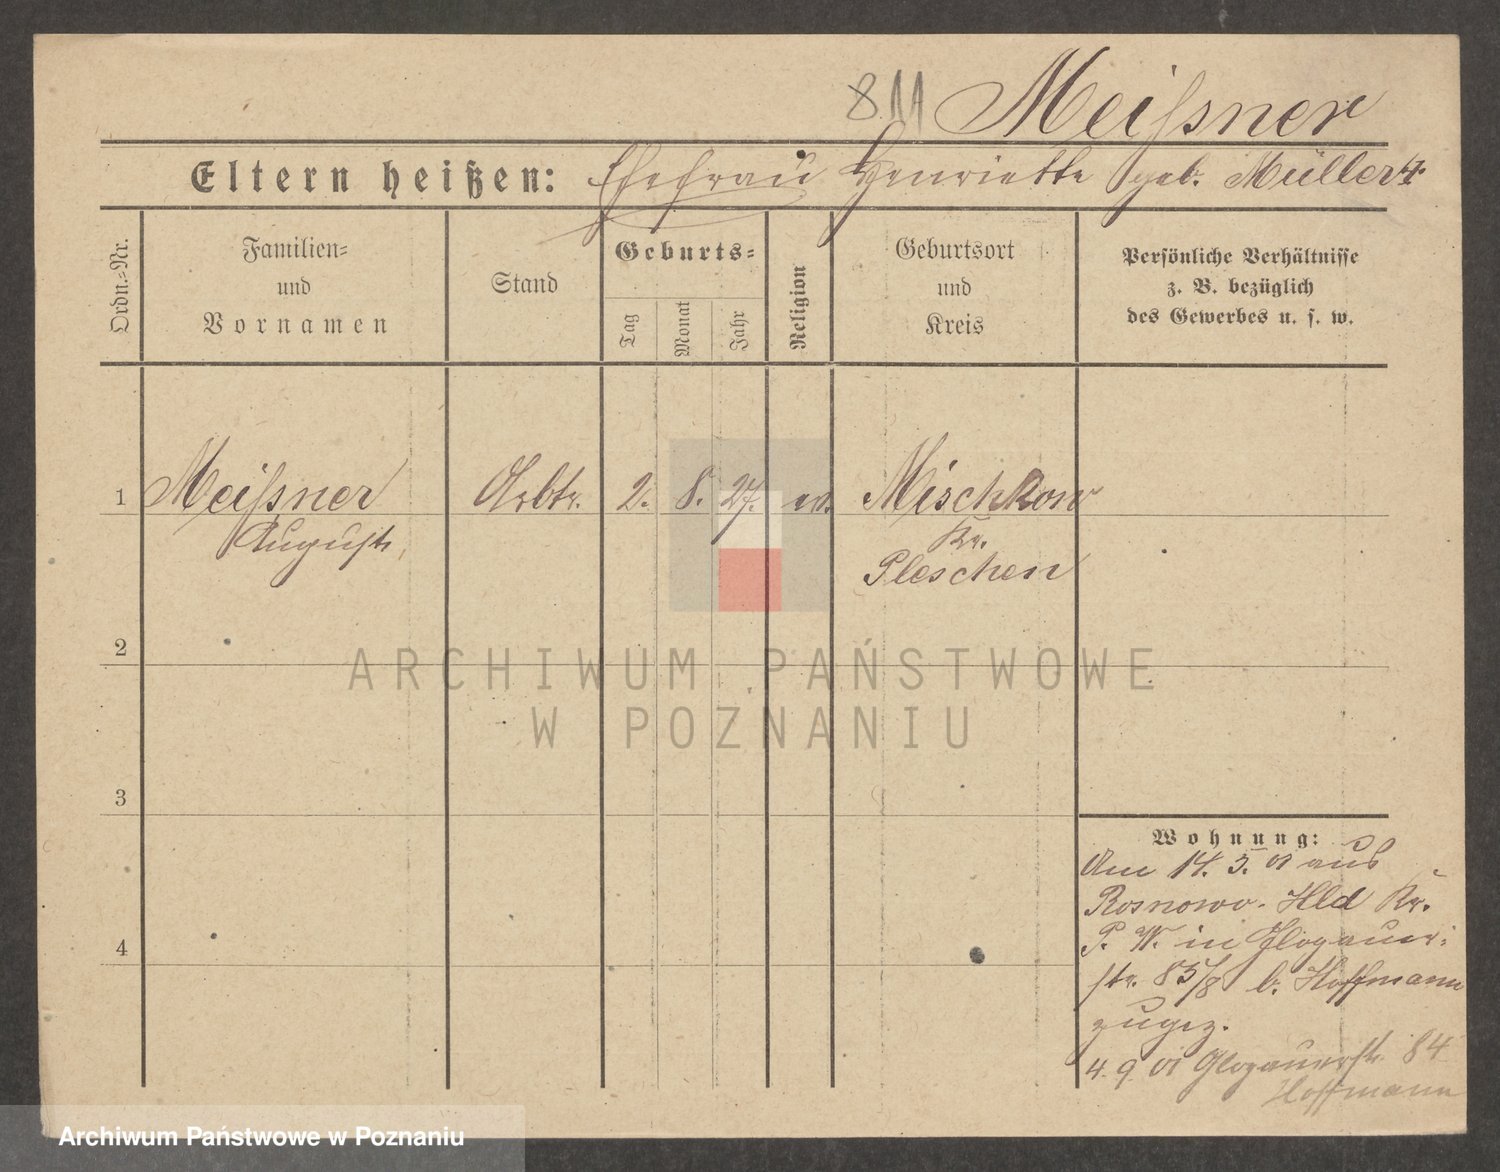 811 Meißner
Eltern heißen: Ehefrau Henriette geb. Müller
Ordn.=Nr.
Familien=
und
Vornamen
Stand
Geburts=
Tag
Monat
Jahr
Religion
Geburtsort
und
Kreis
Persönliche Verhältnisse
z. B. bezüglich
des Gewerbes u. s. w.
1 Meißner Arbtr. 2. 8. 27. ev. Mischkow
August Kr.
Pleschen
2
3
4
Wohnung:
Am 14. 5. 01 aus
Rosnowo. Hld Kr.
P. W. in Glogauer-
str. 85/8 b. Hoffmann
zugez.
4. 9 01 Glogauerstr. 84
Hoffmann
ARCHIWUM PAŃSTWOWE
W POZNANIU
Archiwum Państwowe w Poznaniu